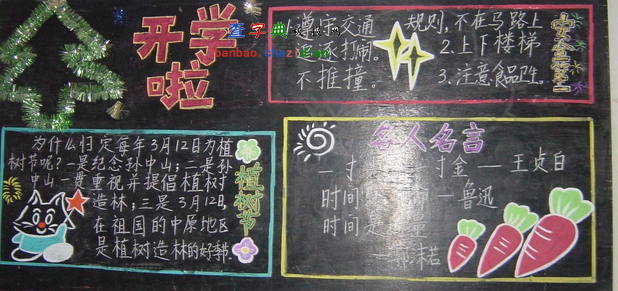 开学
啦
查字典
banbao.chazidian
1.遵守交通
规则,不在马路上
打闹。
2.上下楼梯
不推撞。
3.注意食品卫生。
安全
为什么归定每年3月12日为植
树节呢?一是纪念孙中山;二是孙
中山一贯重视并提倡植树
造林;三是3月12日,
在祖国的中原地区
是植树造林的好种
植树节
名人名言
一寸
寸金——王贞白
时间
一鲁迅
时间是
沫若